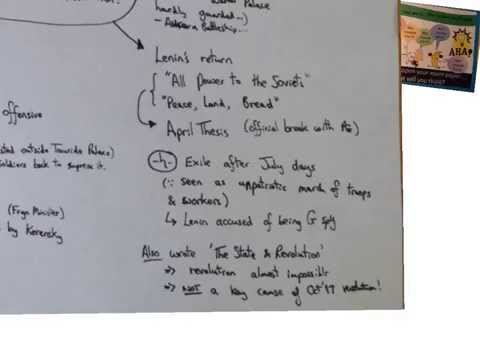 Palace
hardly guarded...)
- Aurora Battleship...
Lenin's return
"All Power to the Soviets"
"Peace, Land, Bread"
April Thesis (official break with PG)
offensive
outside Tauride Palace)
soldiers back to supress it.
(Frgn Minister)
by Kerensky
-h- Exile after July days
(∵ seen as unpatriotic march of troops
& workers)
↳ Lenin accused of being G spy
Also wrote 'The State & Revolution'
=> revolution almost impossible
=> NOT a key cause of Oct '17 revolution!
AHA!